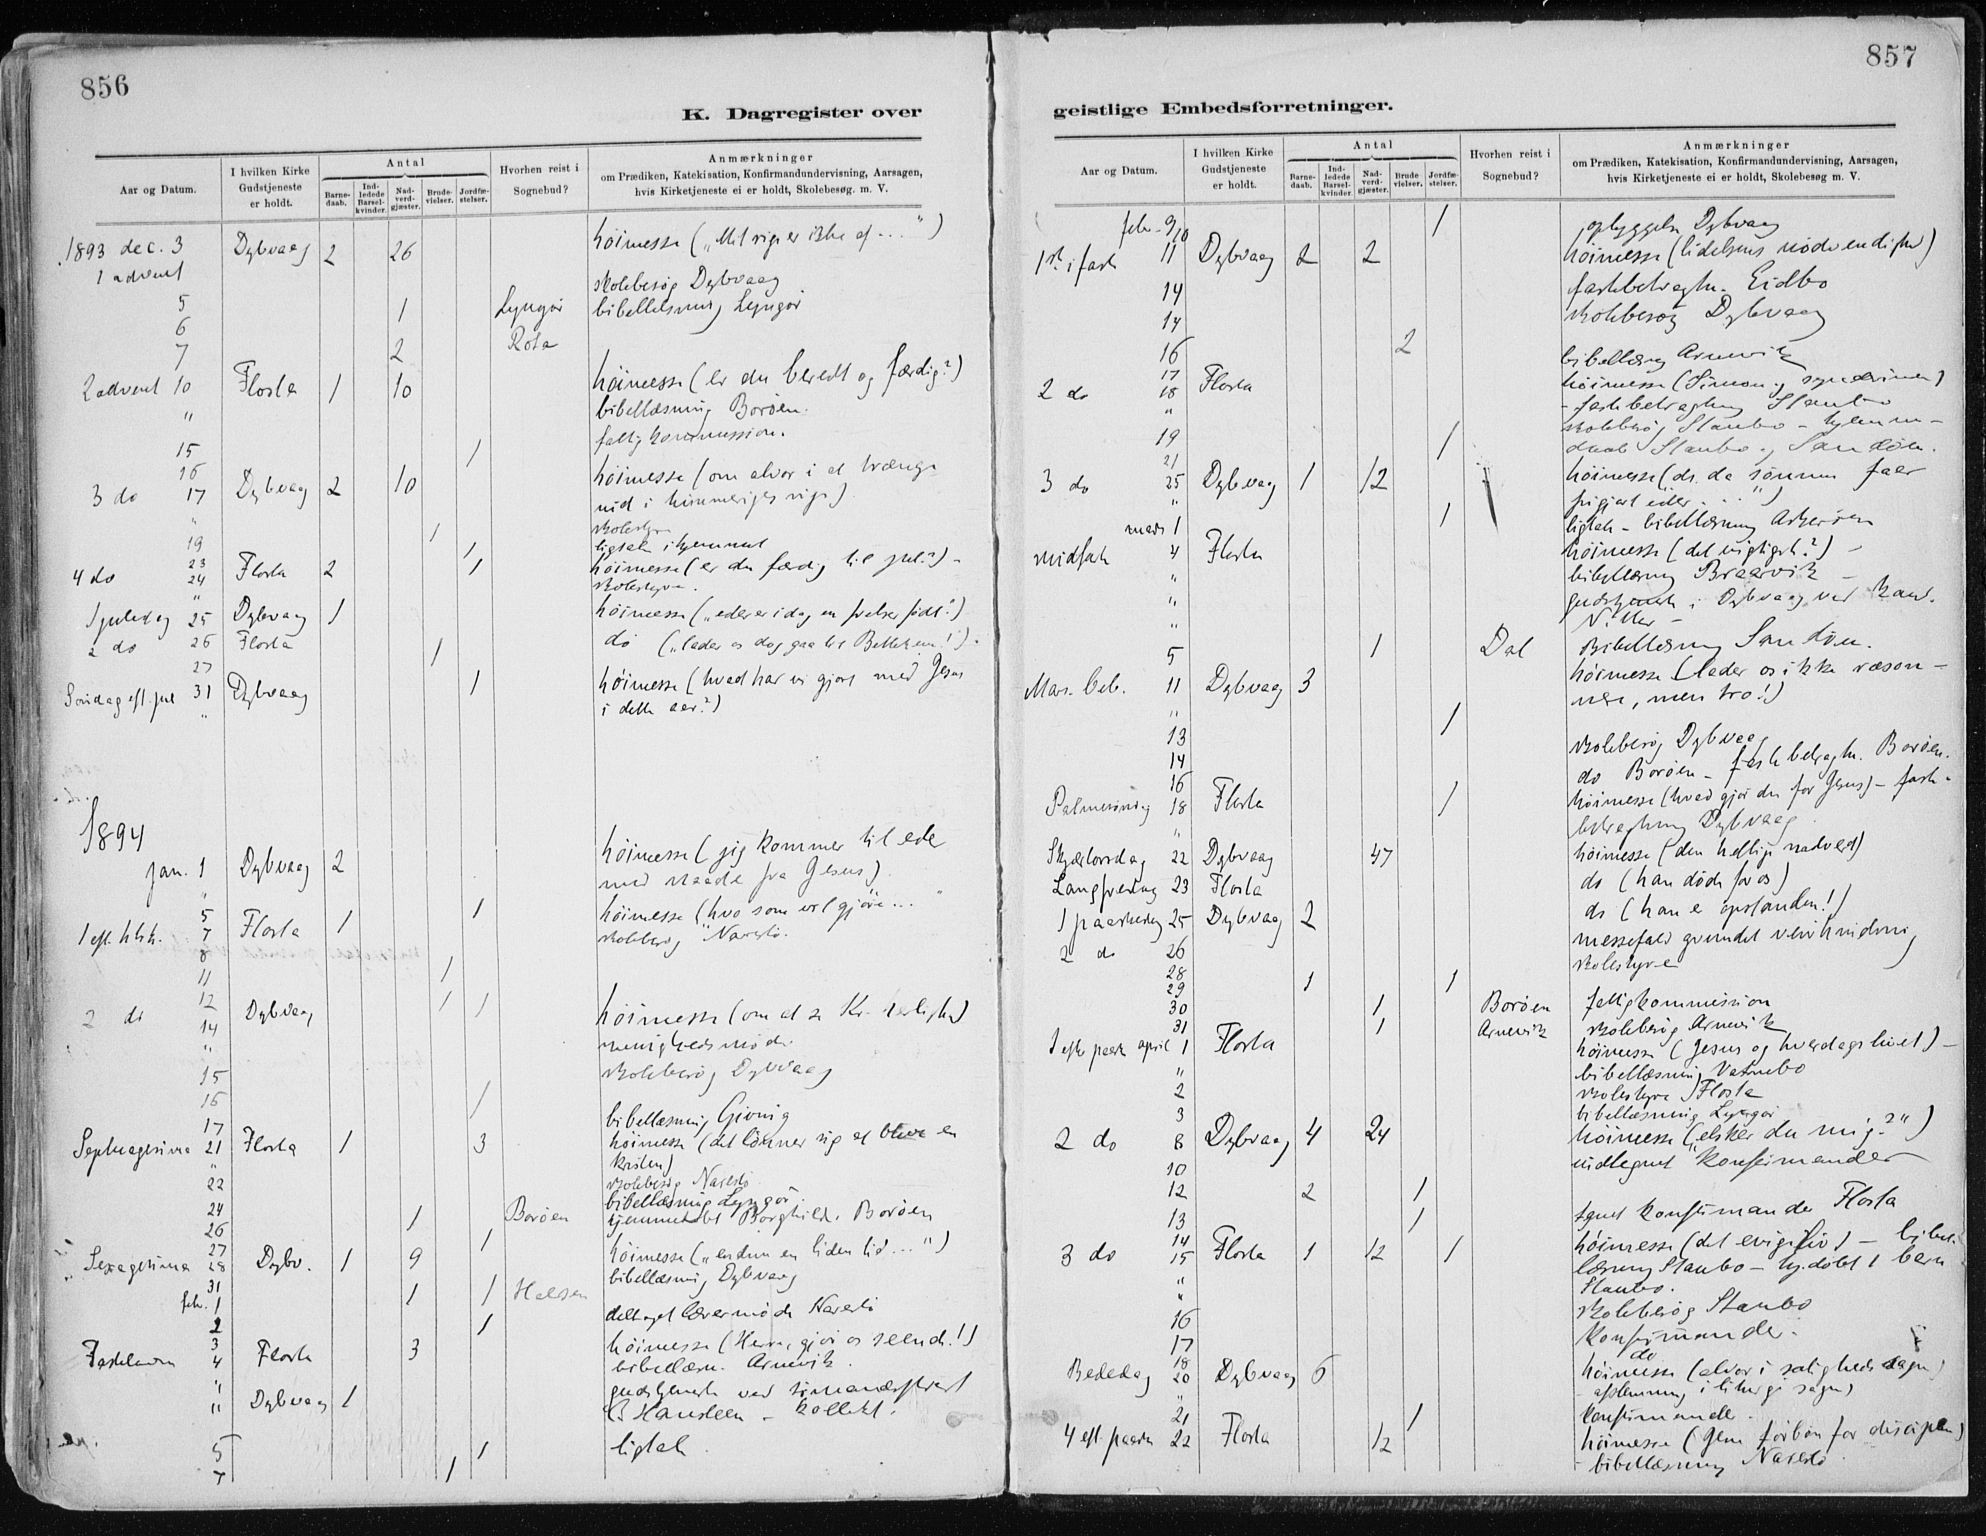 856
K. Dagregister over
Aar og Datum. I hvilken Kirke Gudstjeneste er holdt. Antal Barne-daab. Ind-ledede Barsel-kvinder. Nad-verd-gjæster. Brude-vielser. Jordfæ-stelser. Hvorhen reist i Sognebud? Anmærkninger om Prædiken, Katekisation, Konfirmandundervisning, Aarsagen, hvis Kirketjeneste ei er holdt, Skolebesøg. m. V.
1893 dec. 3 Dybvaag 2 26 høimesse („Mit rige er ikke af ... ")
1 advent
skolebesøg Dybvaag
5 1 Lyngør bibellæsning Lyngør
6 Rota
7 2
2 advent 10 Flosta 1 10 høimesse (er du beredt og færdig?)
" bibellæsning Borøen.
15 1 fattigkommission.
16 høimesse (om alvor i at trænge
3 do 17 Dybvaag 2 10 ind i himmeriges rige)
" skolestyre
19 1 ligtale i hjemmet
23 1
4 do 24 Flosta 2 1 høimesse (er du færdig til jul?) -
" skolestyre.
1 juledag 25 Dybvaag 1 høimesse („eder er i dag en frelser født")
2 do 26 Flosta do („lader os dog gaa til Betlehem!").
27 1
Søndag eft. jul 31 Dybvaag 1 høimesse (hvad har vi gjort med Jesus
" i dette aar?)
1894
jan. 1 Dybvaag 2 høimesse (jeg kommer til eder
" med naade fra Jesus)
5 1
1 eft. h.3.k. 7 Flosta 1 høimesse (hvo som vil gjøre ... "
8 skolebesøg Narestø.
11 1
12 1 1
2 do 14 Dybvaag høimesse (om at se Kr. herlighed)
" menighedsmøde
15 skolebesøg Dybvaag
16 1
17 bibellæsning Gjeving
Septuagesima 21 Flosta 1 3 høimesse (det lønner sig at blive en
" kristen)
22 skolebesøg Narestø
24 bibellæsning Lyngør.
26 1 Borøen hjemmedøbt Borghild. Borøen
27 1
Sexagesima 28 Dybv. 1 9 høimesse („endnu en liden tid ... ")
31 bibellæsning Dybvaag
feb. 1 1 1
2 deltaget lærermøde Narestø
3 1
Fastelavn 4 Flosta 3 høimesse (Herre, gjør os seende!)
" bibellæsn. Arnevik.
" Dybvaag 1 gudstjeneste ved
Hansteen - kollekt.
5 1 ligtale.
7 1
857
geistlige Embedsforretninger.
Aar og Datum. I hvilken Kirke Gudstjeneste er holdt. Antal Barne-daab. Ind-ledede Barsel-kvinder. Nad-verd-gjæster. Brude vielser. Jordfæ-stelser. Hvorhen reist i Sognebud? Anmærkninger om Prædiken, Katekisation, Konfirmandundervisning, Aarsagen, hvis Kirketjeneste ei er holdt, Skolebesøg m. V.
febr. 9/10 1 opbyggelse Dybvaag
1ste i fasten 11 Dybvaag 2 2 høimesse (lidelsens nødvendighed)
14 fastebetragtn. Eidbo
14 skolebesøg Dybvaag
16 2
17 bibellæsng Arnevik
2 do 18 Flosta høimesse (Simon og synderinden)
" - fastebetragtning Staubo
19 skolebesøg Staubo -
21 1 Staubo og Sandøen.
3 do 25 Dybvaag 1 12 høimesse (ds. da sønnen faar
" frigjort eder ... ")
mars 1 1 ligtale - bibellæsning Askerøen
midfaste 4 Flosta høimesse (det vigtigste?) -
" bibellæsning Braarvik -
" gudstjeneste i Dybvaag ved kand.
"
5 1 Dal Bibellæsning Sandøen.
Mar. beb. 11 Dybvaag 3 høimesse (lader os ikke ræson-
" nere, men tro!)
13 1
14 skolebesøg Dybvaag
16 do Borøen - fastebetragtn. Borøen.
Palmesøndag 18 Flosta 1 høimesse (hvad gjør du for Jesus) - faste-
" betragtning Dybvaag
Skjærtorsdag 22 Dybvaag 47 høimesse (den hellige nadverd)
Langfredag 23 Flosta do (han døde for os)
1 paaskedag 25 Dybvaag 2 do (han e opstanden!)
2 do 26 messefald grundet veirhindring
28 skolestyre
29 1 1
30 1 Borøen fattigkommission
31 1 Arnevik skolebesøg Arnevik
1 efter paaske april 1 Flosta høimesse (Jesus og hverdagslivet) -
" bibellæsning Vatnebo
2 skolestyre Flosta
3 bibellæsning Lyngør
2 do 8 Dybvaag 4 24 høimesse („elsker du mig?")
10 indtegnet konfirmander
12 2 1
13 1 tegnet konfirmander Flosta
14
3 do 15 Flosta 1 12 1 høimesse (det evige liv) - bibel-
" læsning Staubo - hj.døbt 1 barn
" Staubo.
16 skolebesøg Staubo
17 konfirmander.
18 do
Bededag 20 Dybvaag 6 høimesse (alvor i salighedssagen)
" - afstemning i liturgi sagen)
21 1 konfirmander.
4 eft. paaske 22 Flosta 12 høimesse (Jesu forbøn for disciplene)
- bibellæsning Narestø